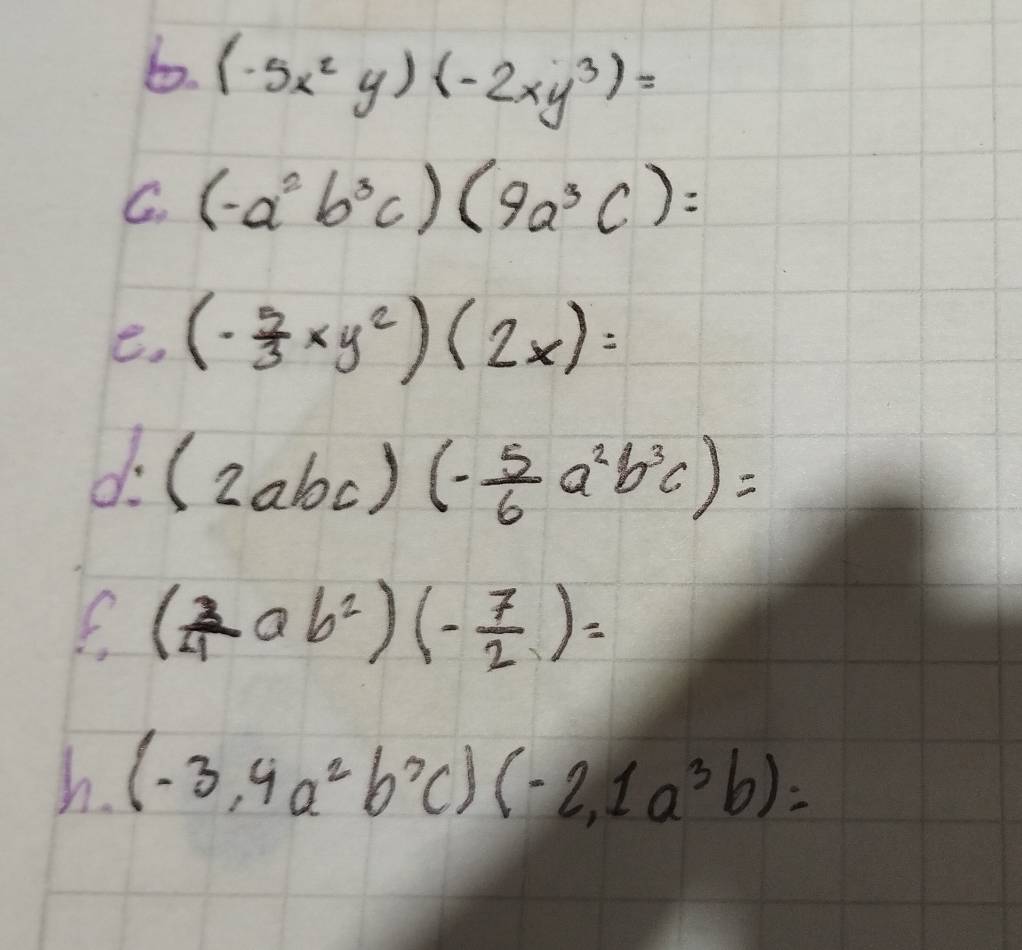 b. (-5x² y) (-2xy³) =
c. (-a² b³c) (9a³ C) =
e. (-5/3 xy²) (2x) =
d: (2abc) (-5/6 a²b³c) =
f. (3/4 ab²) (-7/2) =
h. (-3,4a² b³c) (-2,1a³b) =